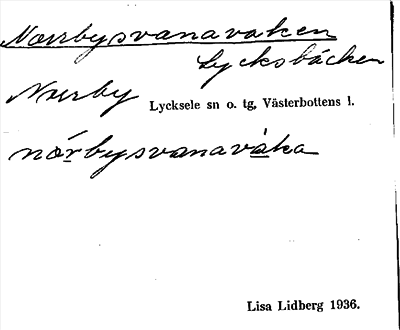 Norrbysvanavaken
Lycksbäcken
Norrby Lycksele sn o. tg, Västerbottens l.
nórbysvanaváka
Lisa Lidberg 1936.